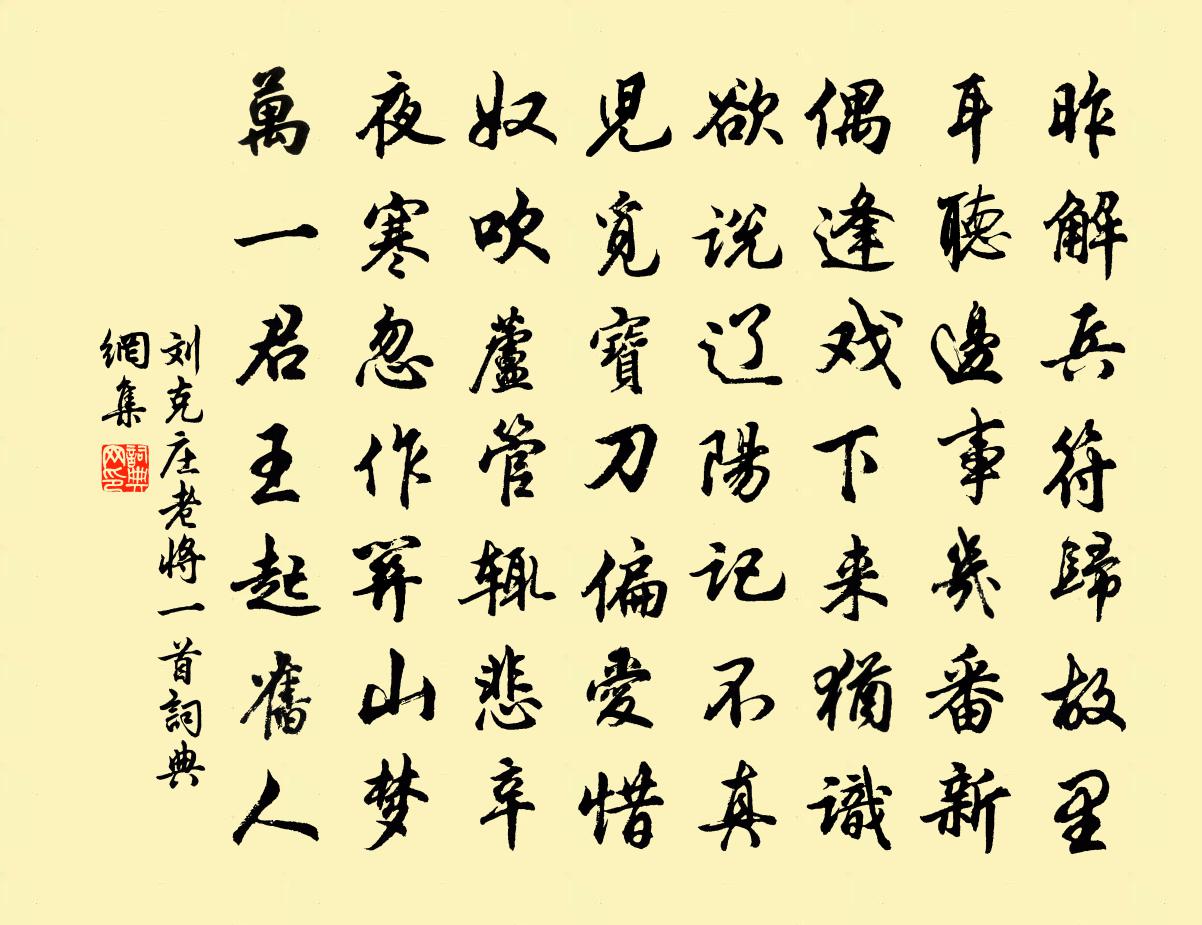 昨解兵符歸故里
耳聽邊事幾番新
偶逢戏下来猶識
欲说辽陽记不真
児覓寶刀偏愛惜
奴吹蘆管輙悲辛
夜寒忽作箳山梦
萬一君王起舊人
刘克庄老将一首詞典
網集
詞典
网印